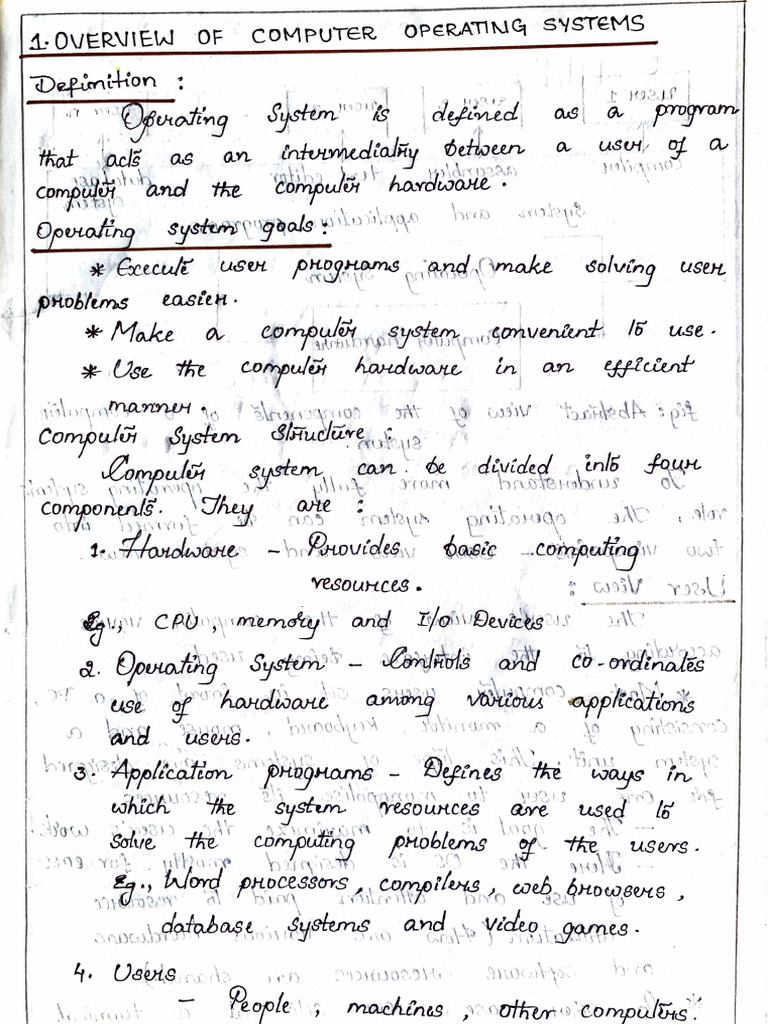 1. OVERVIEW OF COMPUTER OPERATING SYSTEMS
Definition :
Operating System is defined as a program
that acts as an intermediatry between a user of a
computer and the computer hardware.
Operating system goals :
* Execute user programs and make solving user
problems easier.
* Make a computer system convenient to use.
* Use the computer hardware in an efficient
manner.
Computer System Structure :
Computer system can be divided into four
components. They are :
1. Hardware - Provides basic computing
resources.
Eg., CPU, memory and I/o Devices
2. Operating System - Controls and co-ordinates
use of hardware among various applications
and users.
3. Application programs - Defines the ways in
which the system resources are used to
solve the computing problems of the users.
Eg., Word processors, compilers, web browsers,
database systems and video games.
4. Users
- People, machines, other computers.